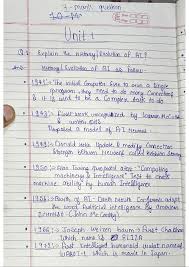 7-mark question
Unit 1
Q.1 Explain the History/Evolution of AI?
Ans History/Evolution of AI is as follow:
1941: The initial computer size to even a single
program, they need to do many connections
& it is used to be a complex task to do
1943: First work recognized by
& walter
Proposed a model of AI
1949: Donald Hebb Update & modify connection
strength b/w neuron called hebbian learning
1950: Alan Turing proposed "Computing
Machinery & Intelligence" Test to check
machine ability by human Intelligence
1956: Birth of AI - Dartmouth Conference adopt
the word Artificial Intelligence by American
Scientist (John McCarthy)
1966: Joseph weizen baum - First Chatbot
which name is ELIZA
1972: First Intelligent humanoid robot name of
WABOT-1, which is made in Japan